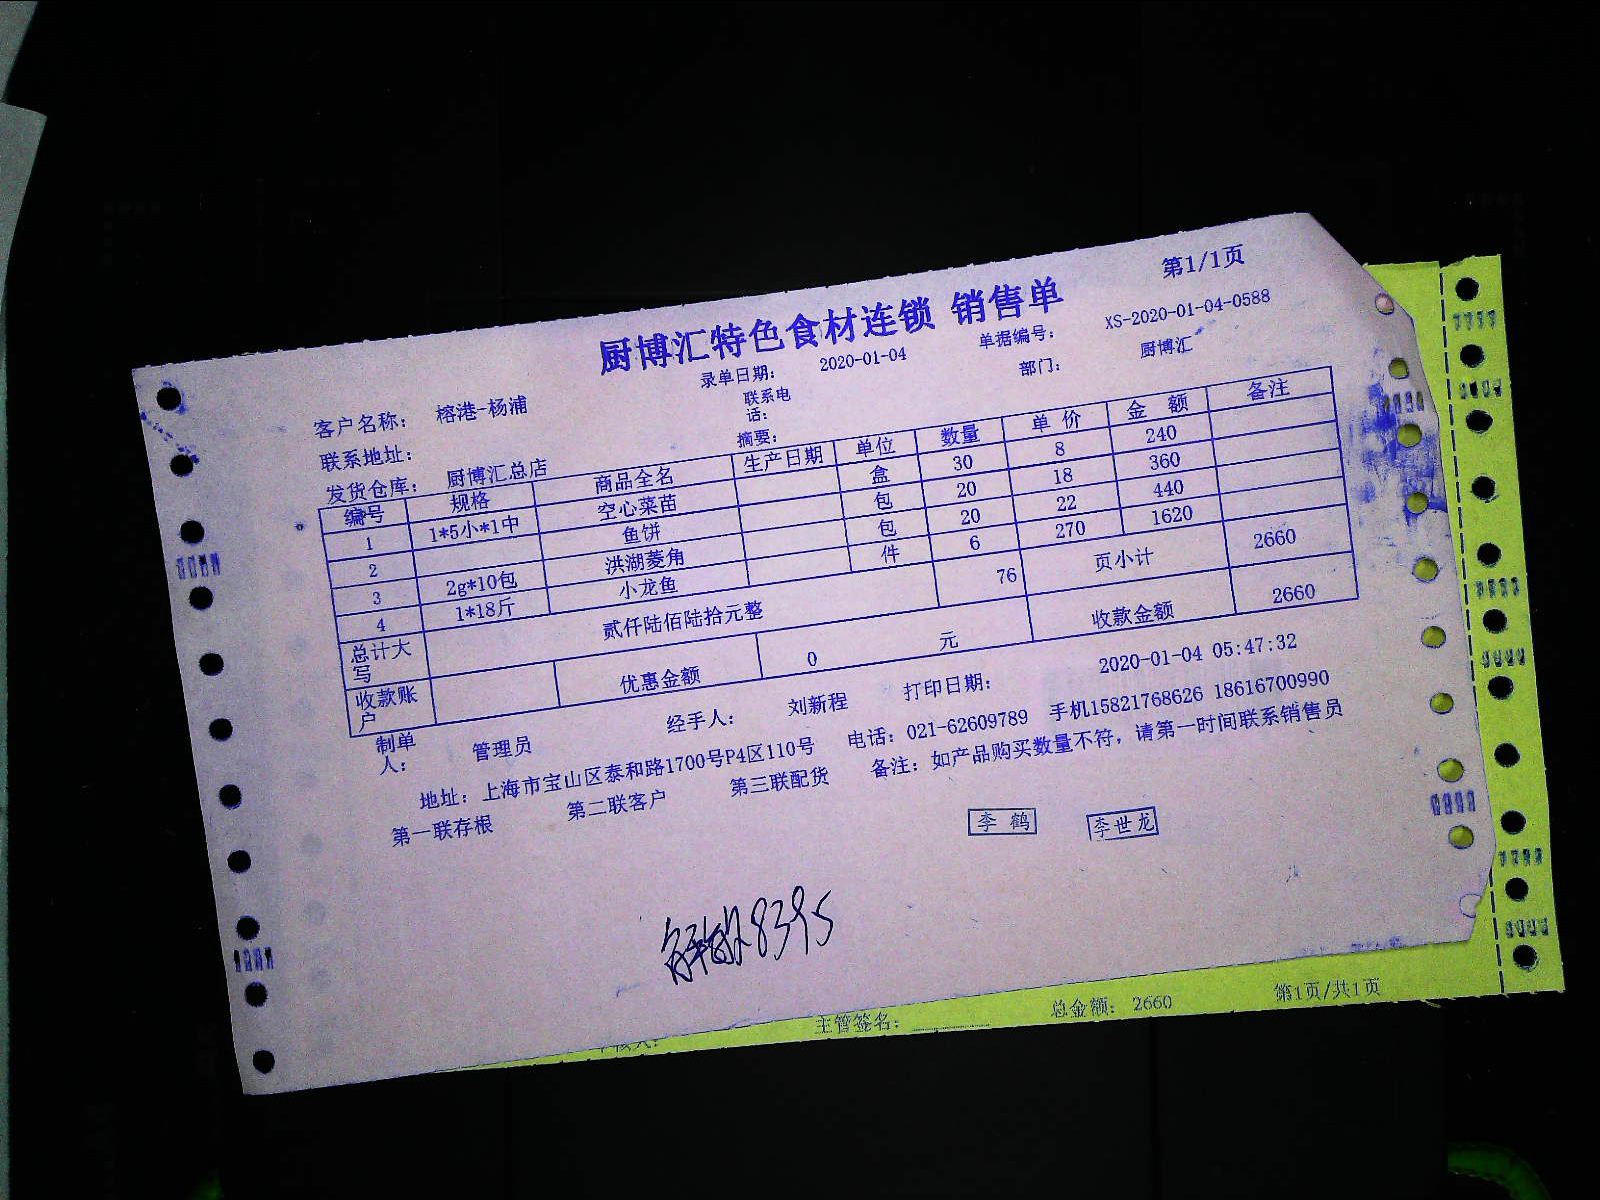 第1/1页
厨博汇特色食材连锁 销售单
录单日期: 2020-01-04 单据编号: XS-2020-01-04-0588
客户名称: 榕港-杨浦 联系电话: 部门: 厨博汇
联系地址: 摘要:
发货仓库: 厨博汇总店
编号 规格 商品全名 生产日期 单位 数量 单价 金额 备注
1 1*5小*1中 空心菜苗 盒 30 8 240
2 鱼饼 包 20 18 360
3 2g*10包 洪湖菱角 包 20 22 440
4 1*18斤 小龙鱼 件 6 270 1620
总计大写 贰仟陆佰陆拾元整 76 页小计 2660
收款账户 优惠金额 0 元 收款金额 2660
制单人: 管理员 经手人: 刘新程 打印日期: 2020-01-04 05:47:32
地址: 上海市宝山区泰和路1700号P4区110号 电话: 021-62609789 手机15821768626 18616700990
第一联存根 第二联客户 第三联配货 备注: 如产品购买数量不符, 请第一时间联系销售员
李鹤 李世龙
8395
主管签名: 总金额: 2660 第1页/共1页